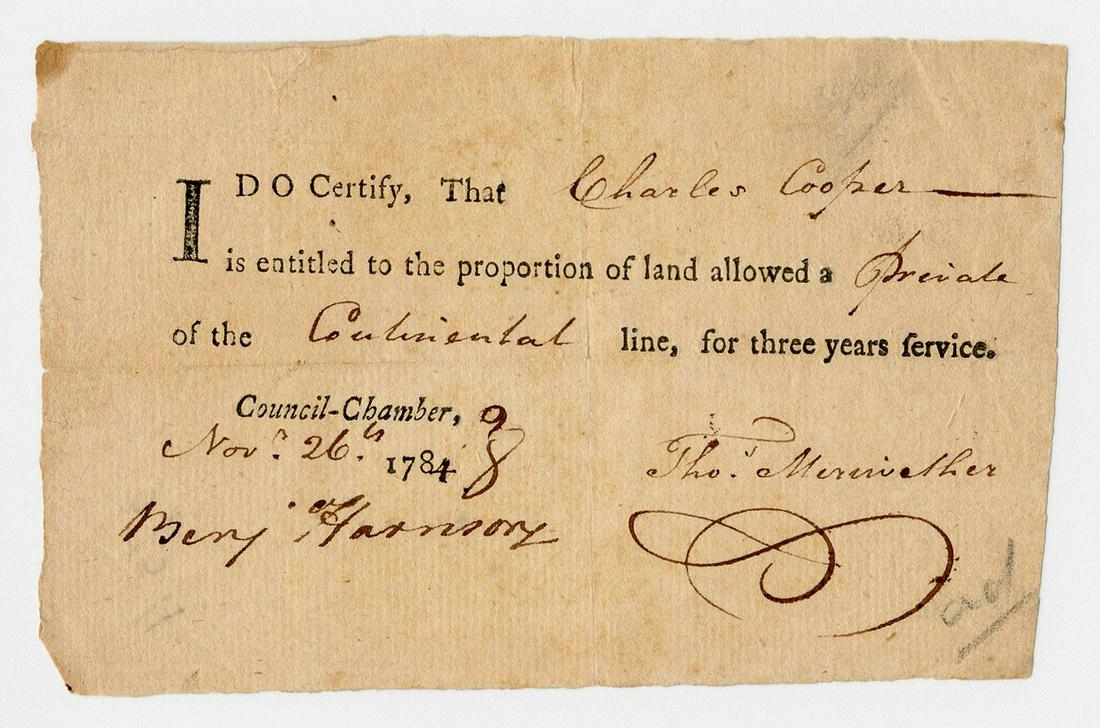 I DO Certify, That Charles Cooper
is entitled to the proportion of land allowed a Private
of the Continental line, for three years ſervice.
Council-Chamber,
Novr. 26th. 1784
Thos. Meriwether
Benj Harrison
ad